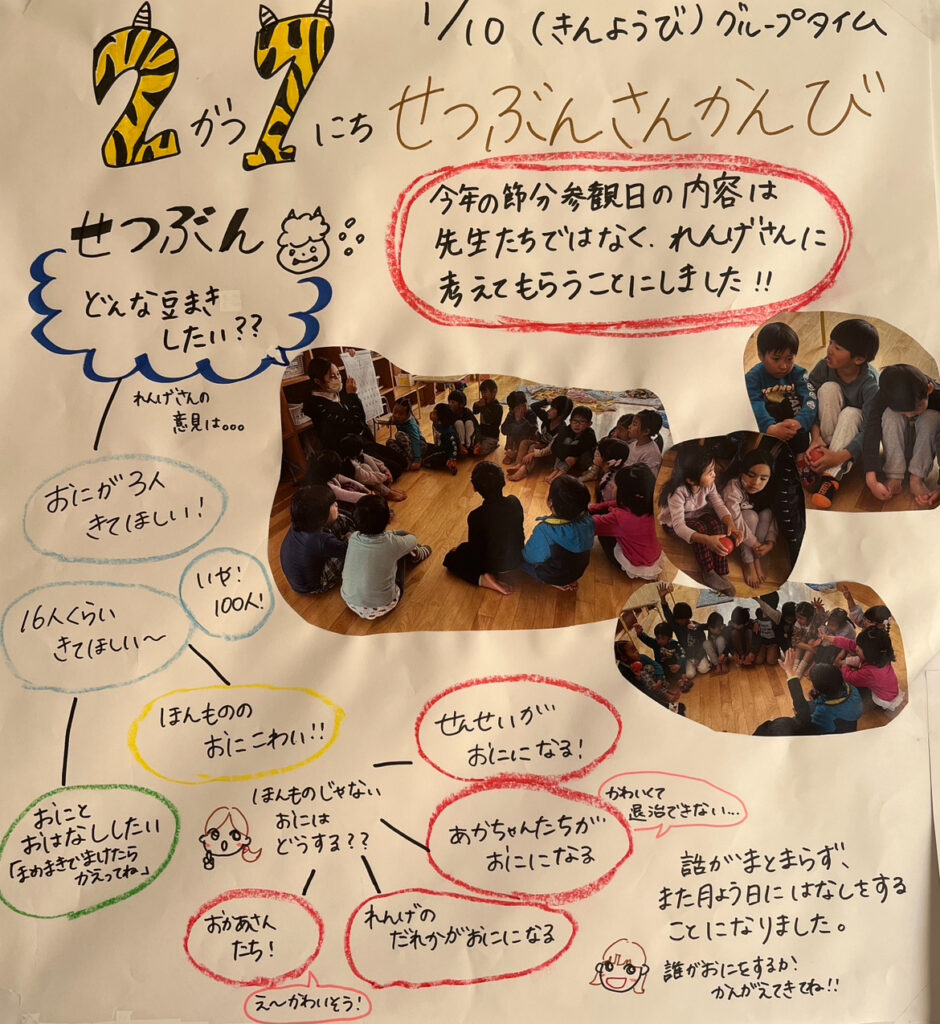 1/10 (きんようび) グループタイム
2がつ7にち せつぶんさんかんび
今年の節分参観日の内容は
先生たちではなく、れんげさんに
考えてもらうことにしました!!
せつぶん
どんな豆まき
したい??
れんげさんの
意見は。。。
おにが3人
きてほしい!
いや!
100人!
16人くらい
きてほしい～
ほんものの
おにこわい!!
おにと
おはなししたい
「まめまきでまけたら
かえってね」
ほんものじゃない
おには
どうする??
せんせいが
おにになる!
あかちゃんたちが
おにになる
かわいくて
退治できない...
れんげの
だれかがおにになる
おかあさん
たち!
え～かわいそう!
話がまとまらず、
また月よう日にはなしをする
ことになりました。
誰がおにをするか
かんがえてきてね!!